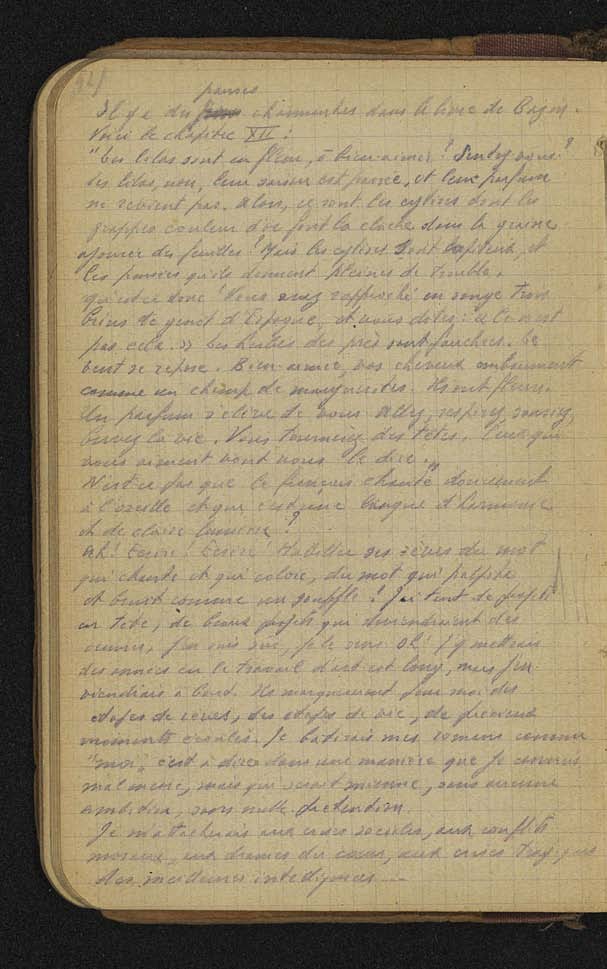 pauses
Il y a des charmantes dans le livre de Bazin.
Voici le chapitre XII :
"Les lilas sont en fleur, ô bien-aimée ! Sentez vous ?
Les lilas, non, leur saison est passée, et leur parfum
ne revient pas. Alors, ce sont les cytises dont les
grappes couleur d'or font la cloche dans la gaine
ajourée des feuilles ! Mais les cytises sont capiteux, et
les pensées qu'ils donnent pleines de trouble.
Qu'est-ce donc ! Vous avez rapproché en songe trois
brins de genêt d'Espagne, et vous dites : « Ce n'est
pas cela. » Les herbes des prés sont fauchées. Le
vent se repose. Bien-aimée, vos cheveux embaument
comme un champ de marguerites. Ils ont fleuri.
Un parfum s'élève de vous. Allez, respirez, souriez,
buvez la vie. Vous tournerez des têtes. Ceux qui
vous aiment vont vous le dire."
N'est-ce pas que le français chante doucement
à l'oreille et que c'est une langue d'harmonie
et de claire lumière ?
Ah ! Ecrire ! Ecrire ! Habiller ses rêves du mot
qui chante et qui colore, du mot qui palpite
et bruit comme un souffle ! J'ai tant de projets
en tête, de beaux projets qui deviendraient des
œuvres, j'en suis sûr, je le sens. Oh ! j'y mettrais
des années car le travail d'art est long, mais j'en
viendrais à bout. Ils marqueraient pour moi des
étapes de rêves, des étapes de vie, de précieux
moments écoulés. Je bâtirais mes romans comme
"moi", c'est à dire dans une manière que je connais
mal encore, mais qui serait mienne, sans aucune
ambition, sans nulle prétention.
Je m'attacherais aux crises sociales, aux conflits
moraux, aux drames du cœur, aux crises tragiques
des meilleures intelligences ...